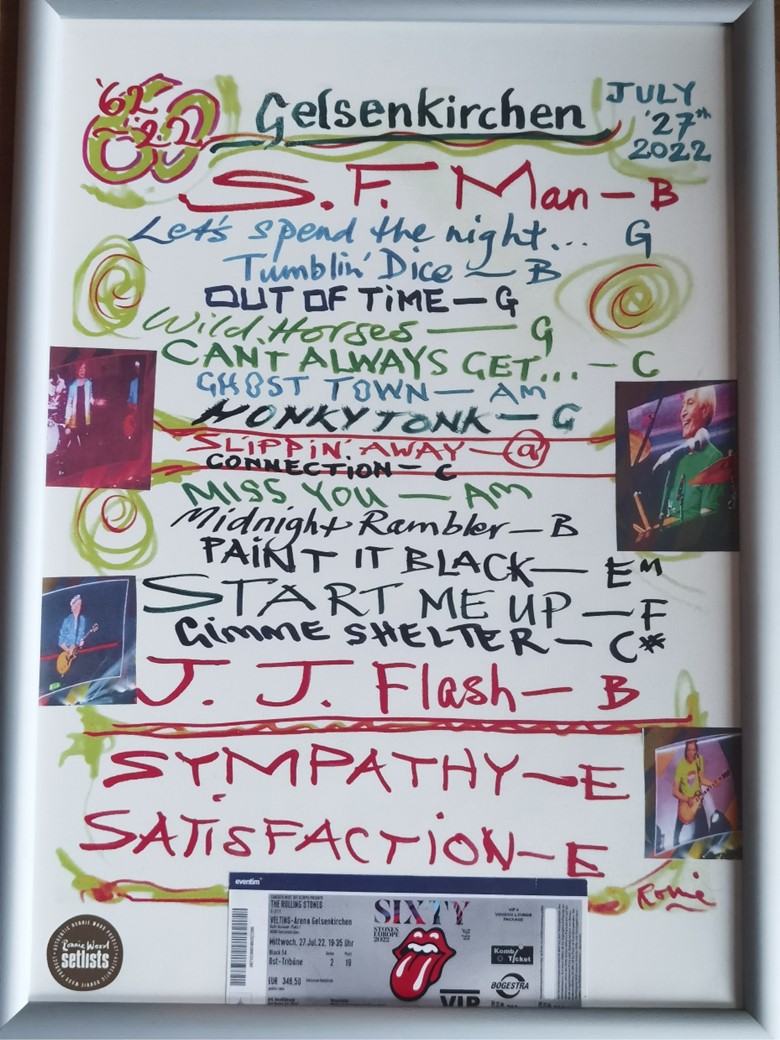 '62
-22
60
Gelsenkirchen
JULY
'27th
2022
S.F. Man - B
Let's spend the night... G
Tumblin' Dice - B
OUT OF TIME - G
Wild Horses - G
CANT ALWAYS GET... - C
GHOST TOWN - AM
HONKY TONK - G
SLIPPIN' AWAY - @
CONNECTION - C
MISS YOU - AM
Midnight Rambler - B
PAINT IT BLACK - EM
START ME UP - F
GIMME SHELTER - C#
J. J. Flash - B
SYMPATHY - E
SATISFACTION - E
Ronnie
Ronnie Wood
setlists
eventim
THE ROLLING STONES
VELTINS-Arena Gelsenkirchen
Mittwoch, 27.Jul.22, 19:35 Uhr
Block 54
Ost-Tribüne 2 19
EUR 348,50
SIXTY
STONES
EUROPE
2022
VIP
Kombi
Ticket
BOGESTRA